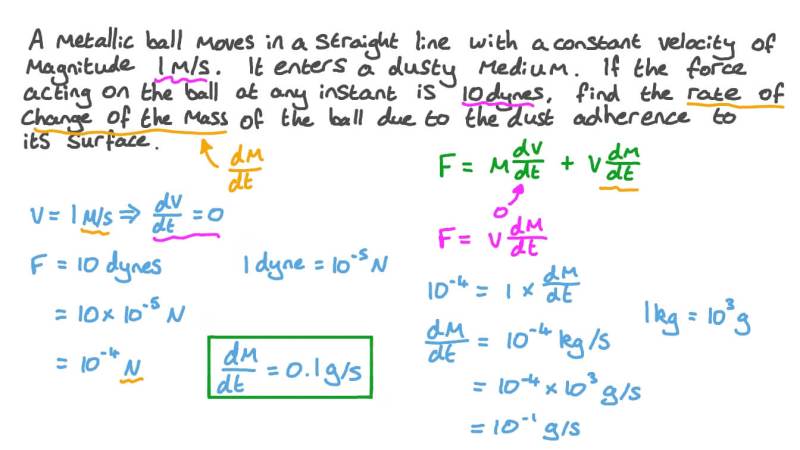 A metallic ball moves in a straight line with a constant velocity of
magnitude 1 m/s. It enters a dusty medium. If the force
acting on the ball at any instant is 10 dynes, find the rate of
change of the mass of the ball due to the dust adherence to
its surface.
dM/dt
F = M dv/dt + v dM/dt
0
v = 1 m/s ⇒ dv/dt = 0
F = v dM/dt
F = 10 dynes
1 dyne = 10⁻⁵ N
= 10 × 10⁻⁵ N
= 10⁻⁴ N
dM/dt = 0.1 g/s
10⁻⁴ = 1 × dM/dt
1 kg = 10³ g
dM/dt = 10⁻⁴ kg/s
= 10⁻⁴ × 10³ g/s
= 10⁻¹ g/s